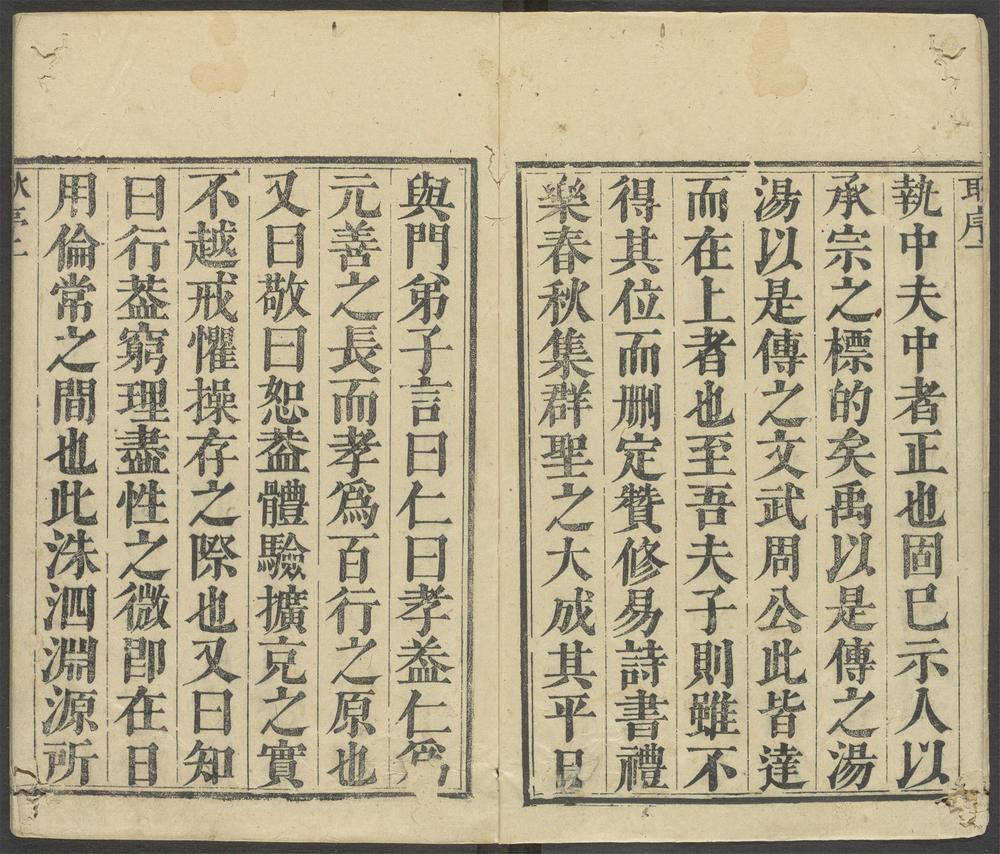 執中夫中者正也固已示人以
承宗之標的矣禹以是傳之湯
湯以是傳之文武周公此皆達
而在上者也至吾夫子則雖不
得其位而删定贊修易詩書禮
樂春秋集群聖之大成其平日
與門弟子言曰仁曰孝葢仁爲
元善之長而孝爲百行之原也
又曰敬曰恕葢體驗擴克之實
不越戒懼操存之際也又曰知
曰行葢窮理盡性之微卽在日
用倫常之間也此洙泗淵源所